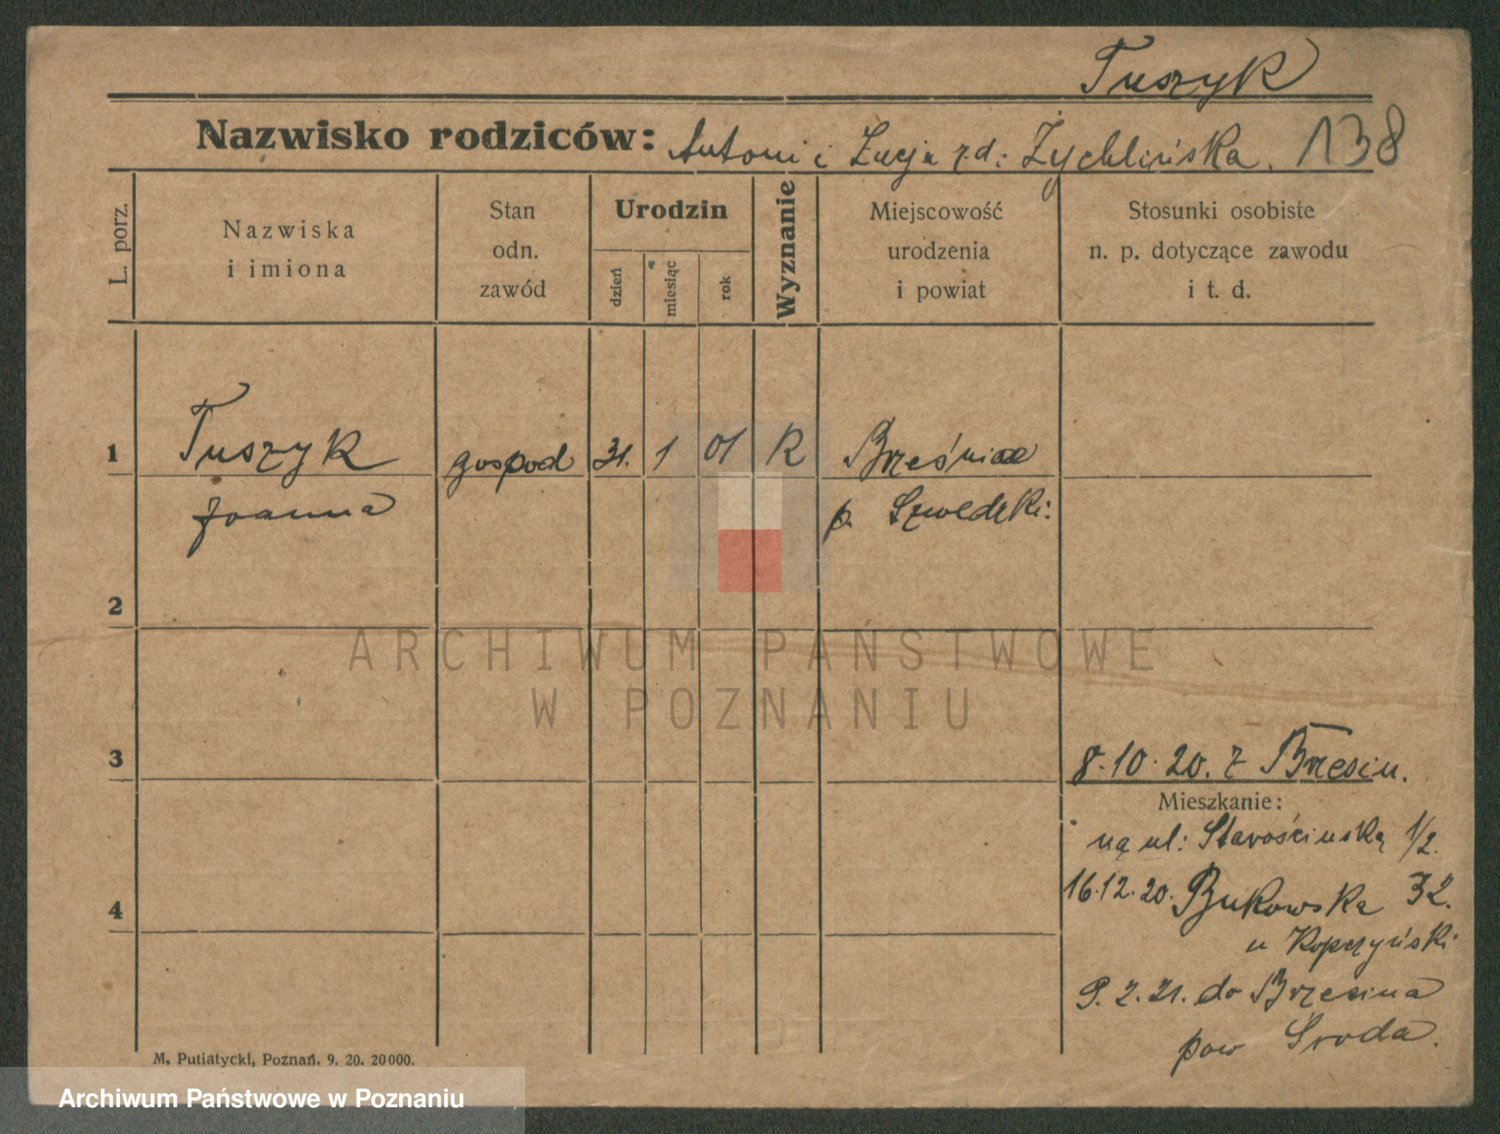 Tuszyk
Nazwisko rodziców: Antoni i Łucja z d: Żychlińska. 138
L. porz.
Nazwiska
i imiona
Stan
odn.
zawód
Urodzin
dzień
miesiąc
rok
Wyznanie
Miejscowość
urodzenia
i powiat
Stosunki osobiste
n. p. dotyczące zawodu
i t. d.
1 Tuszyk gospod 31. 1 01 R
Joanna p.
2
ARCHIWUM PAŃSTWOWE
W POZNANIU
3 8.10.20. z Brzesin.
Mieszkanie:
na ul: Starościńską 1/2.
16.12.20. Bukowska 32.
u Kopczyński
9.2.21. do Brzesina
pow Środa.
4
M. Putiatycki, Poznań. 9. 20. 20000.
Archiwum Państwowe w Poznaniu